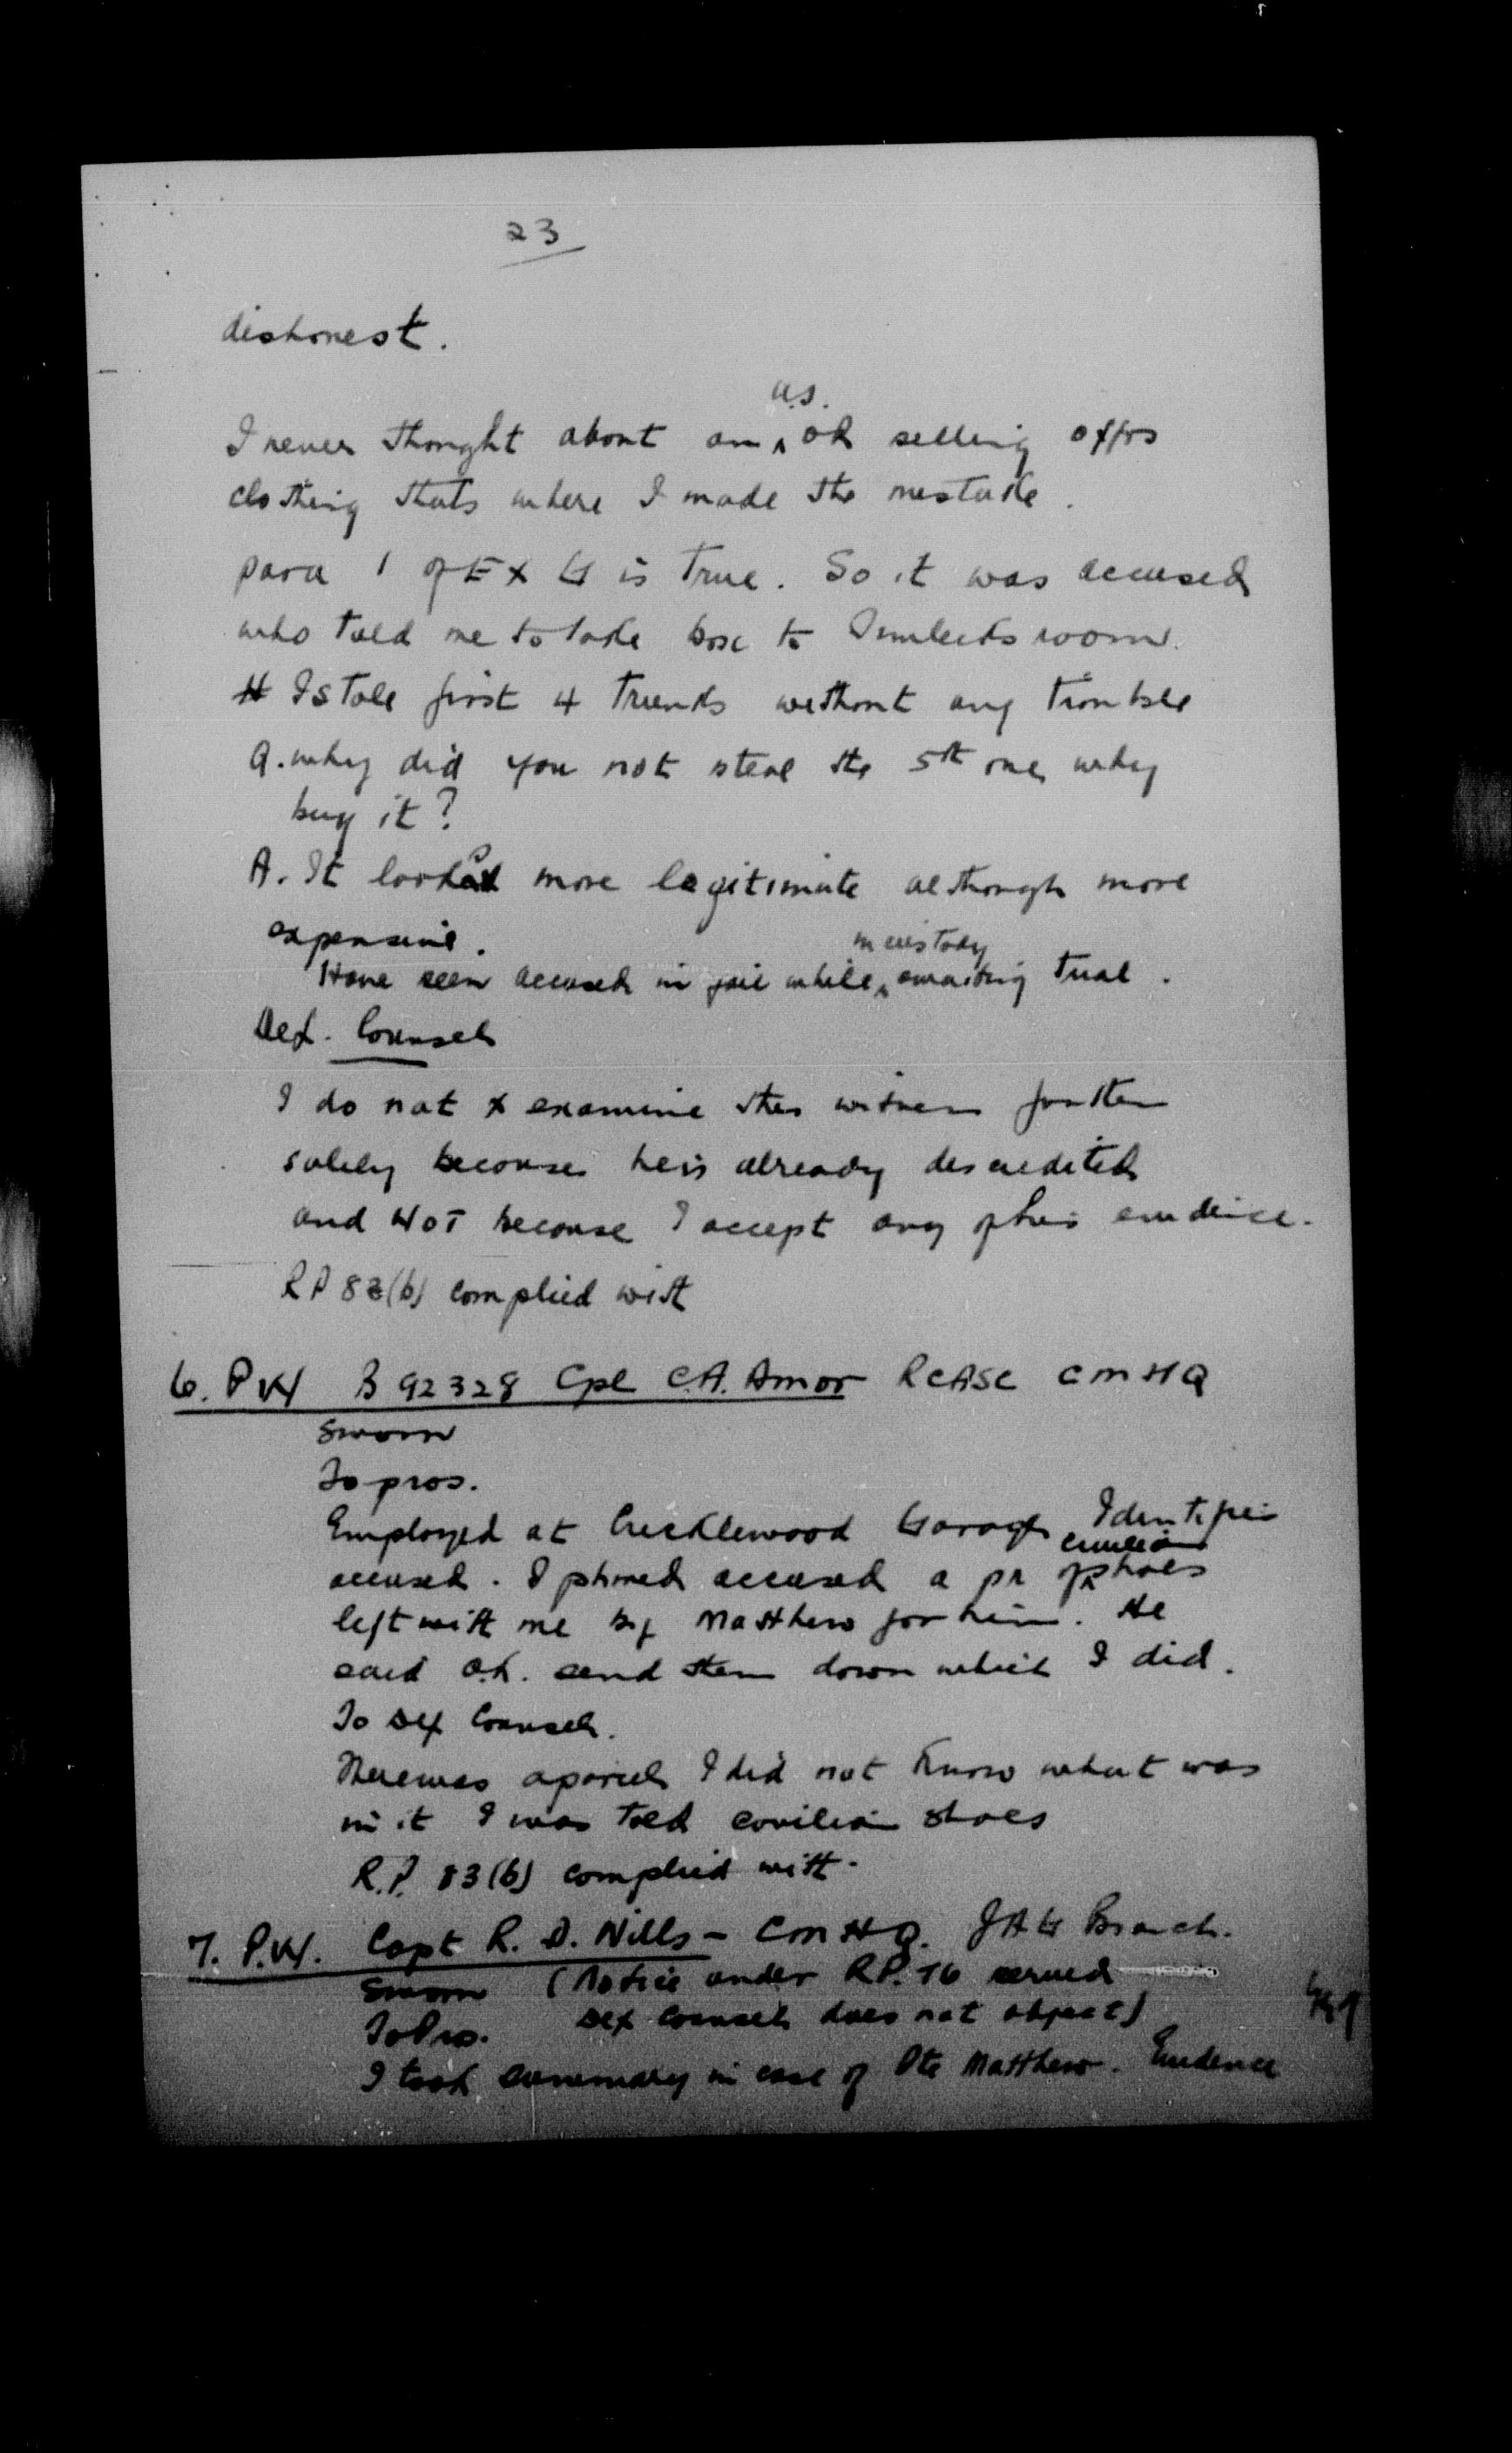 23
dishonest.
a.s.
I never thought about an ^ OR selling offrs
clothing thats where I made the mistake.
para 1 of Ex G is true. So it was accused
who told me to take box to room.
I stole first 4 trunks without any trouble
Q. why did you not steal the 5th one, why
buy it?
A. It looked more legitimate although more
expensive.
in custody
Have seen accused in jail while ^ awaiting trial.
Def. Counsel
I do not x examine this witness further
solely because he is already discredited
and NOT because I accept any of his evidence.
RP 83(b) complied with
6. P.W. B 92328 Cpl C.A. Amor RCASC CMHQ
Sworn
To pros.
Employed at Cricklewood Garage Identifies
civilian
accused. I phoned accused a pr of ^ shoes
left with me by Matthew for him. He
said O.K. send them down which I did.
To Def Counsel.
There was a parcel I did not know what was
in it I was told civilian shoes
R.P. 83(b) complied with.
7. P.W. Capt R. D. Wills - CMHQ. JAG Branch.
Sworn (Notice under RP. 76 served
To Pros. Def Counsel does not object)
I took summary in case of Pte Matthew. Evidence